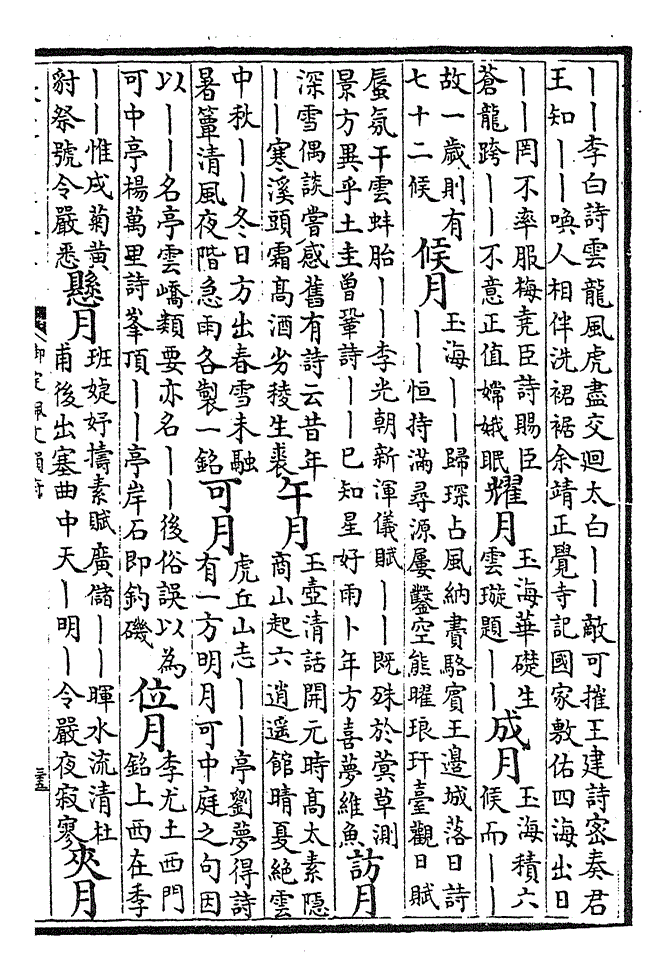 ｜｜李白詩雲龍風虎盡交迴太白｜｜敵可摧王建詩密奏君
王知｜｜喚人相伴洗裙裾余靖正覺寺記國家敷佑四海出日
｜｜罔不率服梅堯臣詩賜臣
蒼龍跨｜｜不意正值嫦娥眠
耀月
玉海華礎生
雲璇題｜｜
成月
玉海積六
候而｜｜
故一歲則有
七十二候
候月
玉海｜｜歸琛占風納賮駱賓王邊城落日詩
｜｜恒持滿尋源屢鑿空熊曜琅玕臺觀日賦
蜃氛干雲蚌胎｜｜李光朝新渾儀賦｜｜既殊於蓂草測
景方異乎土圭曾鞏詩｜｜已知星好雨卜年方喜夢維魚
訪月
深雪偶談嘗感舊有詩云昔年
｜｜寒溪頭霜高酒劣稜生裘
午月
玉壺清話開元時高太素隱
商山起六逍遥館晴夏絶雲
中秋｜｜冬日方出春雪未融
暑簟清風夜階急雨各製一銘
可月
虎丘山志｜｜亭劉夢得詩
有一方明月可中庭之句因
以｜｜名亭雲嶠類要亦名｜｜後俗誤以為
可中亭楊萬里詩峯頂｜｜亭岸石即釣磯
位月
李尤土西門
銘上西在季
｜｜惟戌菊黄
豺祭號令嚴悉
懸月
班婕妤擣素賦廣儲｜｜暉水流清杜
甫後出塞曲中天｜明｜令嚴夜寂寥
夾月